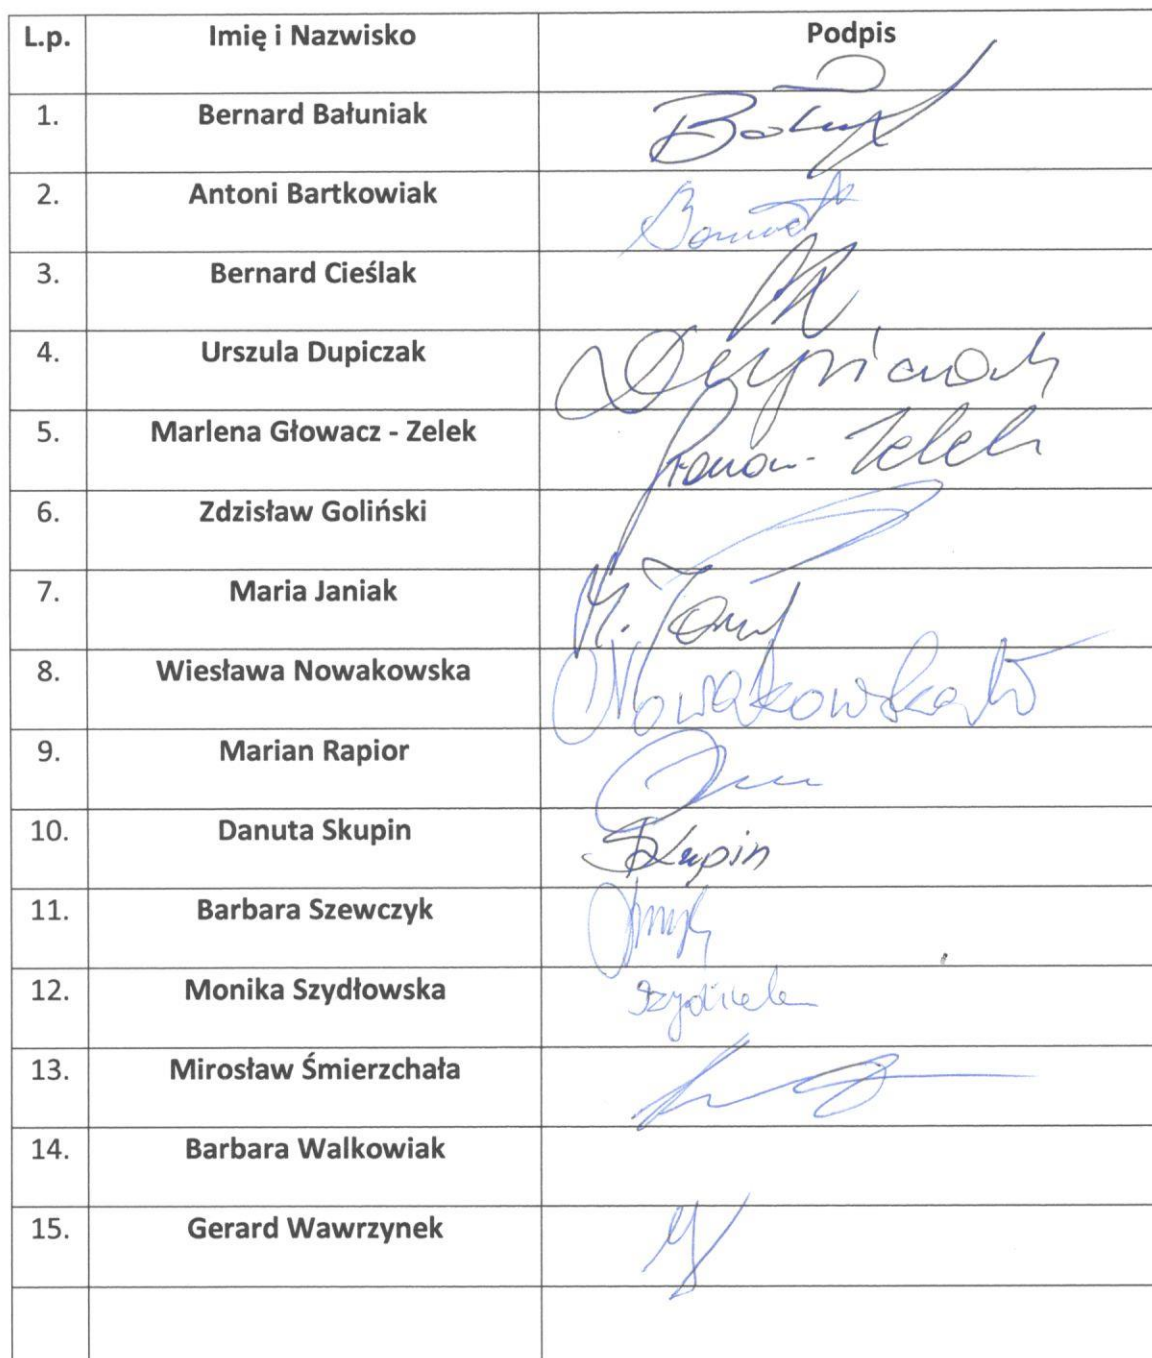 L.p. Imię i Nazwisko Podpis
1. Bernard Bałuniak
2. Antoni Bartkowiak
3. Bernard Cieślak
4. Urszula Dupiczak
5. Marlena Głowacz - Zelek Zelek
6. Zdzisław Goliński
7. Maria Janiak M.
8. Wiesława Nowakowska Nowakowska
9. Marian Rapior
10. Danuta Skupin Skupin
11. Barbara Szewczyk
12. Monika Szydłowska
13. Mirosław Śmierzchała
14. Barbara Walkowiak
15. Gerard Wawrzynek